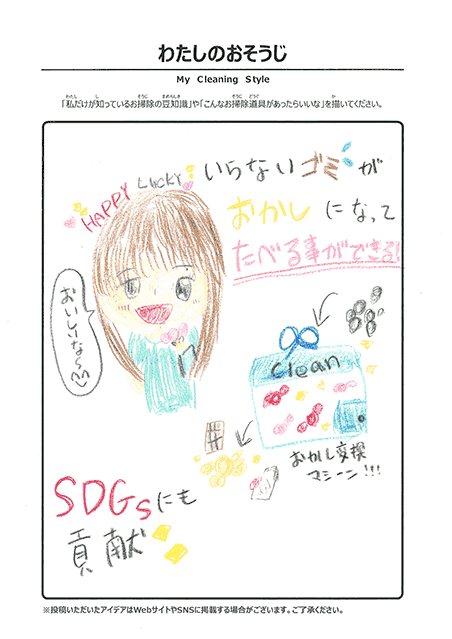 わたしのおそうじ
My Cleaning Style
「私だけが知っているお掃除の豆知識」や「こんなお掃除道具があったらいいな」を描いてください。
HAPPY LUCKY
いらないゴミが
おかしになって
たべる事ができる!
おいしいなら〜
clean
おかし変換
マシーン!!!
SDGsにも
貢献
※投稿いただいたアイデアはWebサイトやSNSに掲載する場合がございます。ご了承ください。